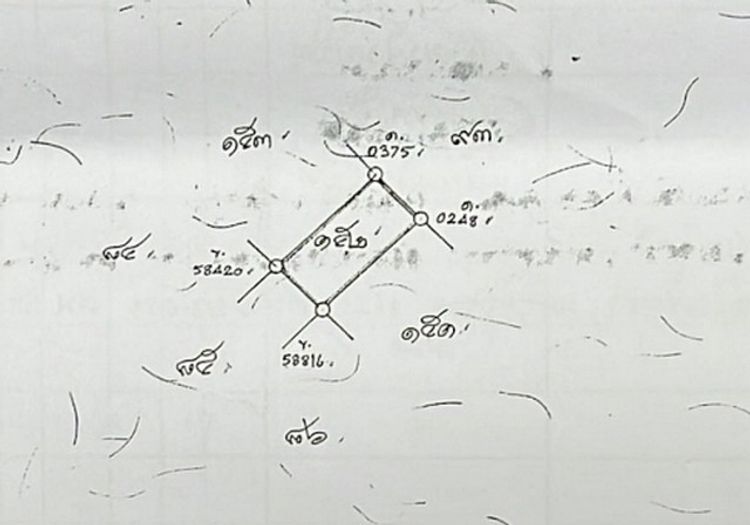 ๑๕๓
๙๓
ด.
0375
ด.
0248
๑๕๒
๘๔
ข.
58420
๑๕๑
๘๕
ข.
58816
๘๖